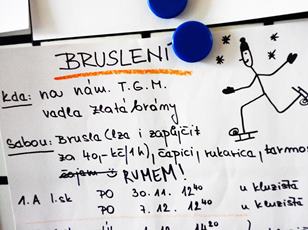 BRUSLENÍ
kda: na nám. T.G.M.
vadla zlaté brány
sabou: brusla (lza i zapůjčit
za 40,- kč/1h), čapici, rukavica, tarmo
RUMEM!
1.A 1.sk PO 30.11. 12⁴⁰ u kluziště
PO 7.12. 12⁴⁰ u kluziště